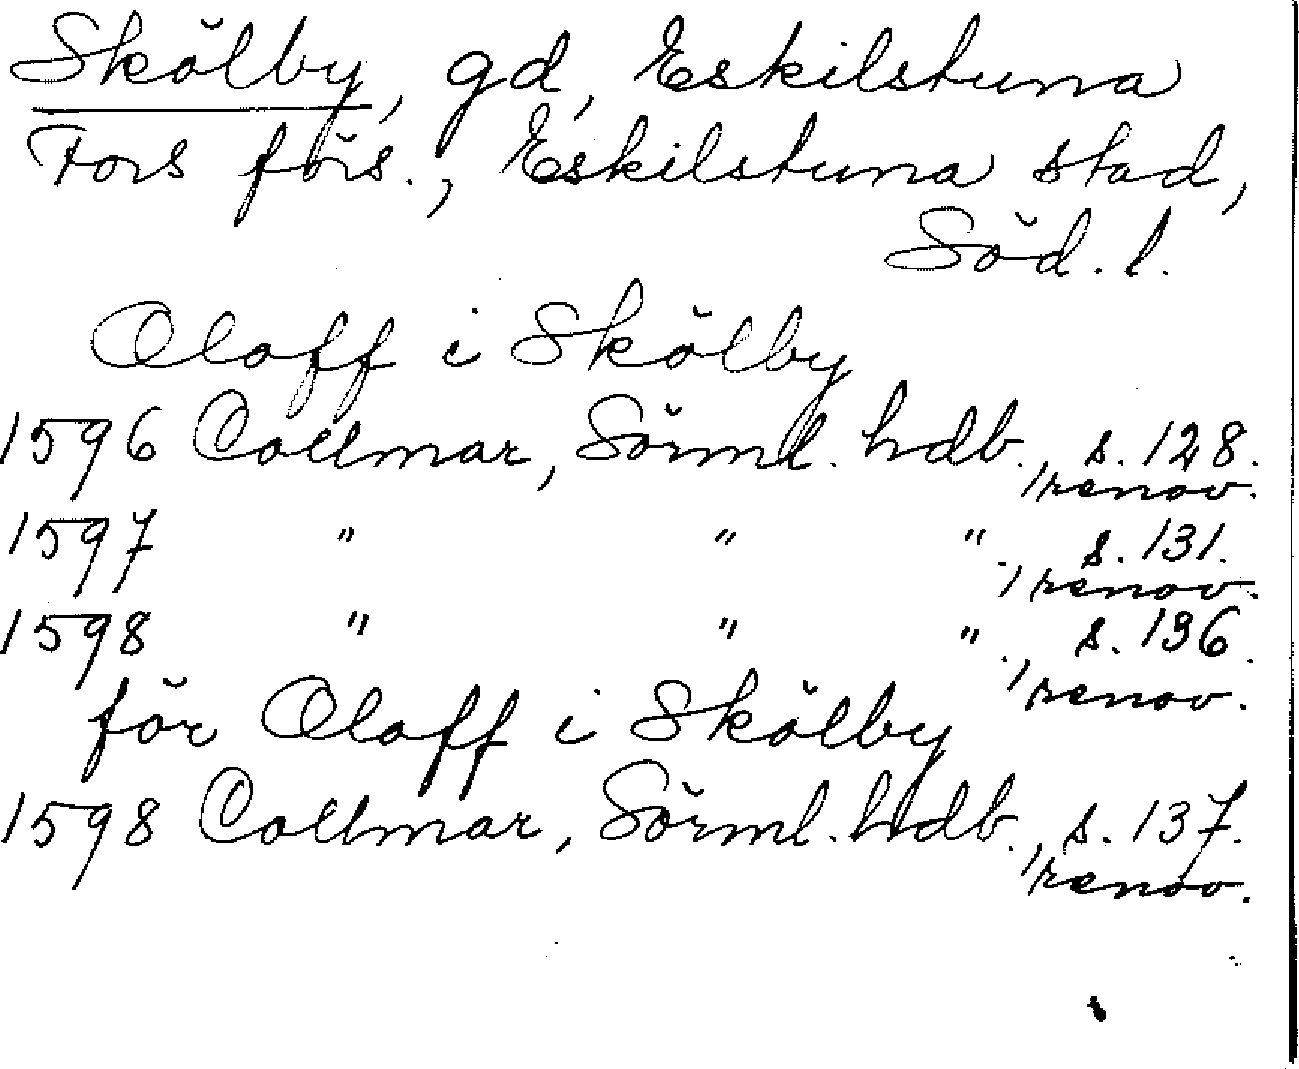 Skölby, gd, Eskilstuna
Fors förs., Eskilstuna stad,
Söd. l.
Oloff i Skölby
1596 Collmar, Sörml. hdb., s. 128.
renov.
1597 " " "., s. 131.
renov.
1598 " " "., s. 136.
renov.
för Oloff i Skölby
1598 Collmar, Sörml. hdb., s. 137.
renov.